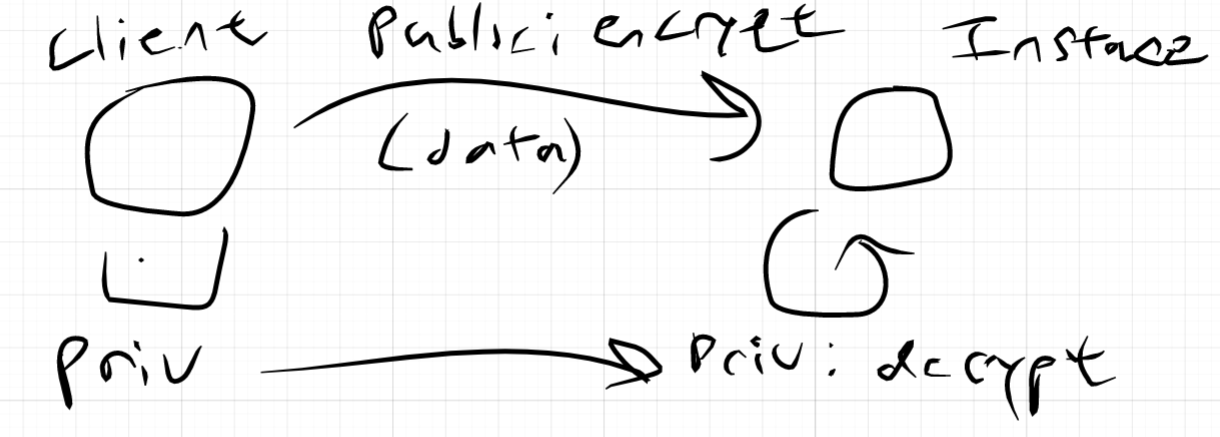 Client Public: encrypt Instace
(data)
Priv Priv: decrypt